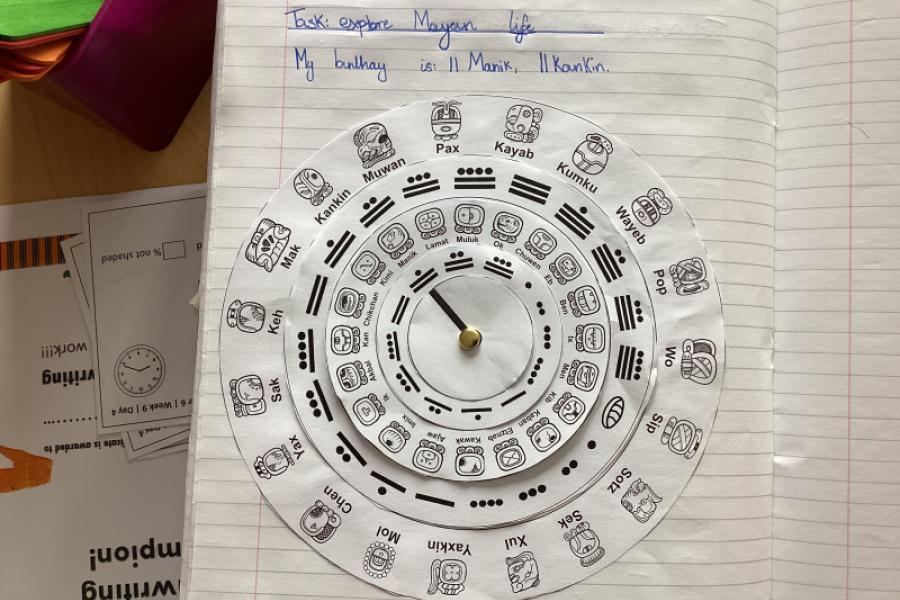 Task: explore Mayan life
My birthday is: 11 Manik, 11 Kankin.
Pax
Kayab
Kumku
Wayeb
Pop
Wo
Sip
Sotz
Sek
Xul
Yaxkin
Mol
Chen
Yax
Sak
Keh
Mak
Kankin
Muwan
Muluk
Ok
Chuwen
Eb
Ben
Ix
Men
Kib
Kaban
Etznab
Kawak
Ajaw
Imix
Ik
Akbal
Kan
Chikchan
Kimi
Manik
Lamat
% not shaded
6 | Week 9 | Day 4
work!!!
writing
is awarded to
writing